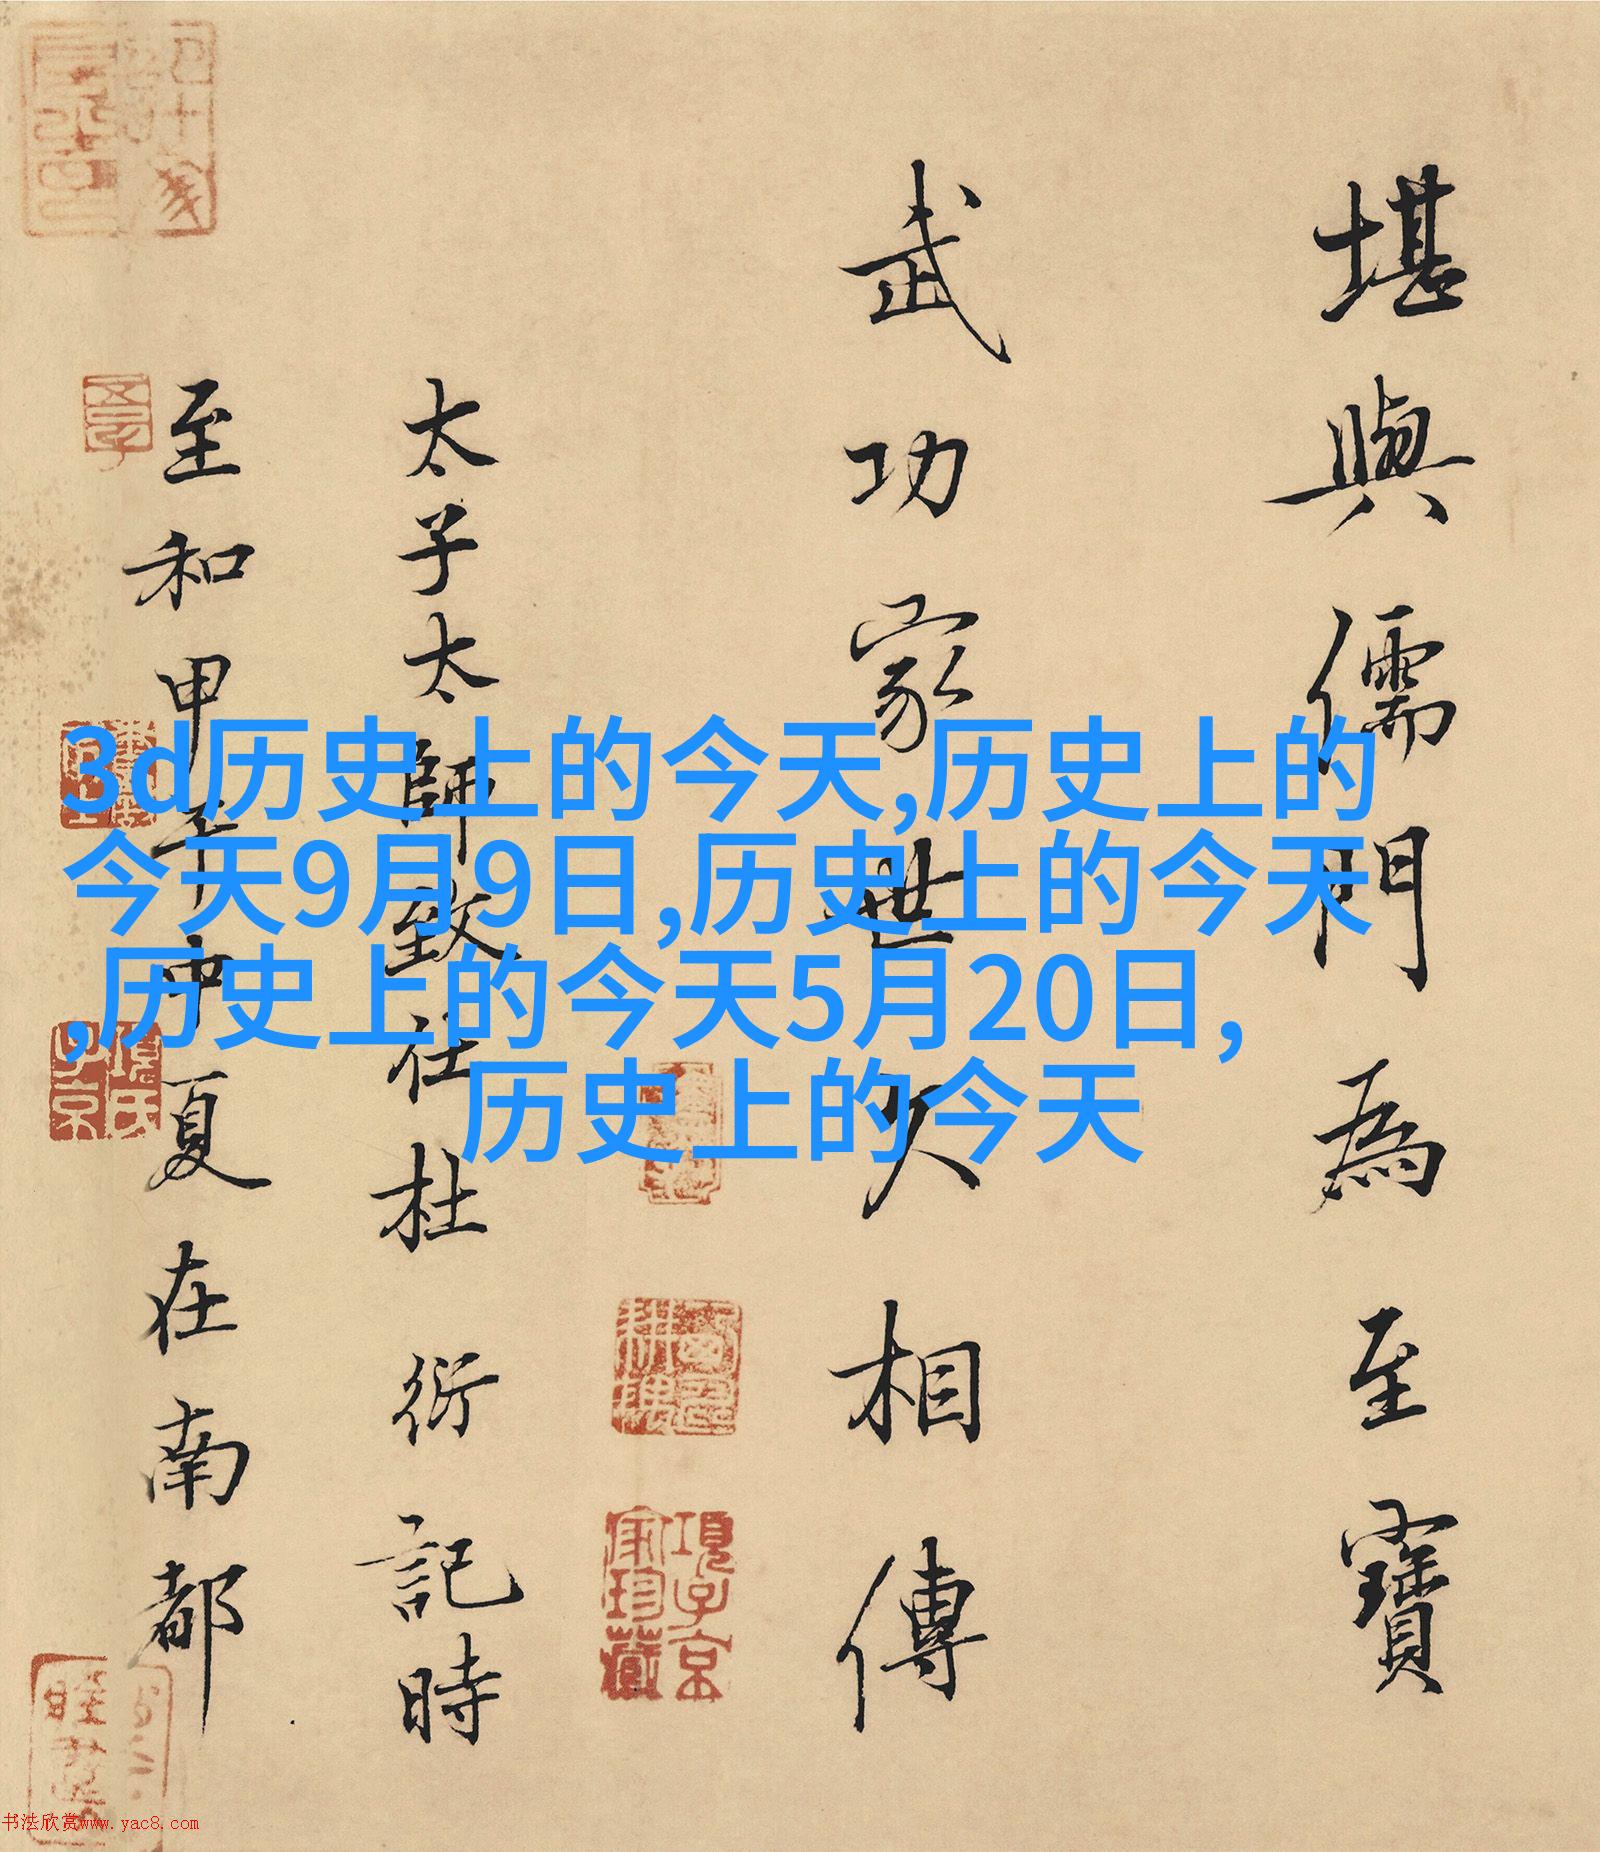 堪與儒門為至寶
武功家世久相傳
太子太師致仕杜衍記時
至和甲午中夏在南都
3d历史上的今天,历史上的
今天9月9日,历史上的今天
,历史上的今天5月20日,
历史上的今天
項子京
家珍藏
項氏
子京
书法欣赏www.yac8.com